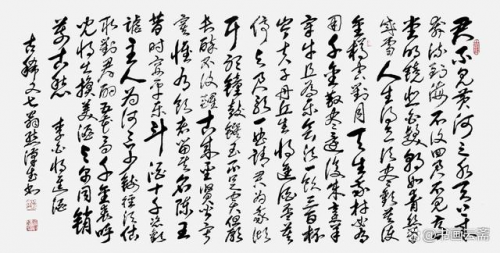 君不见黄河之水天上来
奔流到海不复回君不见高
堂明镜悲白发朝如青丝暮
成雪人生得意须尽欢莫使
金樽空对月天生我材必有
用千金散尽还复来烹羊
宰牛且为乐会须一饮三百杯
岑夫子丹丘生将进酒杯莫
停与君歌一曲请君为我倾
耳听钟鼓馔玉不足贵但愿
长醉不复醒古来圣贤皆寂
寞惟有饮者留其名陈王
昔时宴平乐斗酒十千恣欢
谑主人为何言少钱径须沽
取对君酌五花马千金裘呼
儿将出换美酒与尔同销
万古愁 李白将进酒
古稀又七翁 书
@书画云斋